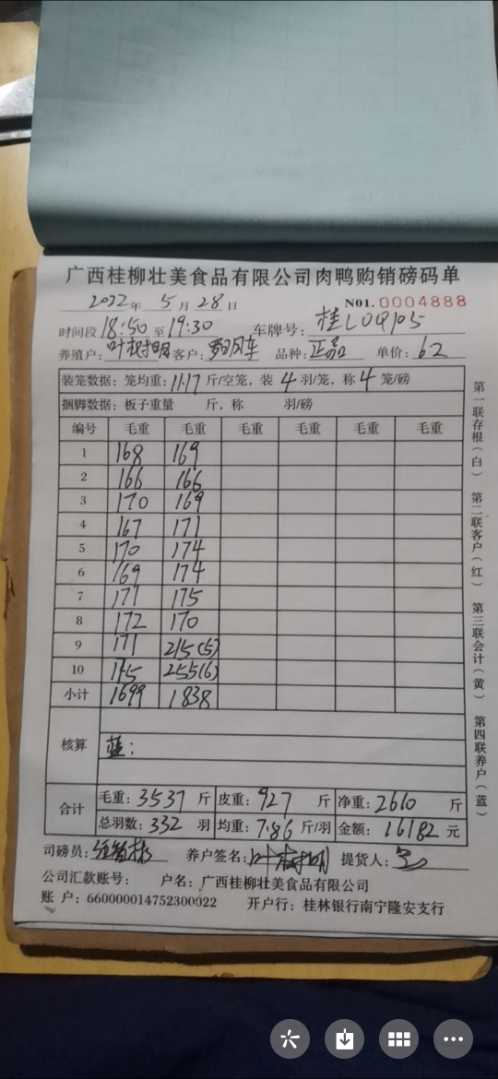 广西桂柳壮美食品有限公司肉鸭购销磅码单
2022年 5月 28日 N01.0004888
时间段 18:50 至 19:30 车牌号: 桂L09105
养殖户: 客户: 品种: 正品 单价: 6.2
装笼数据: 笼均重: 11.17 斤/空笼, 装 4 羽/笼, 称 4 笼/磅
捆脚数据: 板子重量 斤, 称 羽/磅
编号 毛重 毛重 毛重 毛重 毛重 毛重
1 168 169
2 166 166
3 170 169
4 167 171
5 170 174
6 169 174
7 171 175
8 172 170
9 171 215(5)
10 175 255(6)
小计 1699 1838
核算 蓝:
合计 毛重: 3537 斤 皮重: 927 斤 净重: 2610 斤
总羽数: 332 羽 均重: 7.86 斤/羽 金额: 16182 元
司磅员: 养户签名: 提货人:
公司汇款账号: 户名: 广西桂柳壮美食品有限公司
账 户: 660000014752300022 开户行: 桂林银行南宁隆安支行
第一联存根(白) 第二联客户(红) 第三联会计(黄) 第四联养户(蓝)